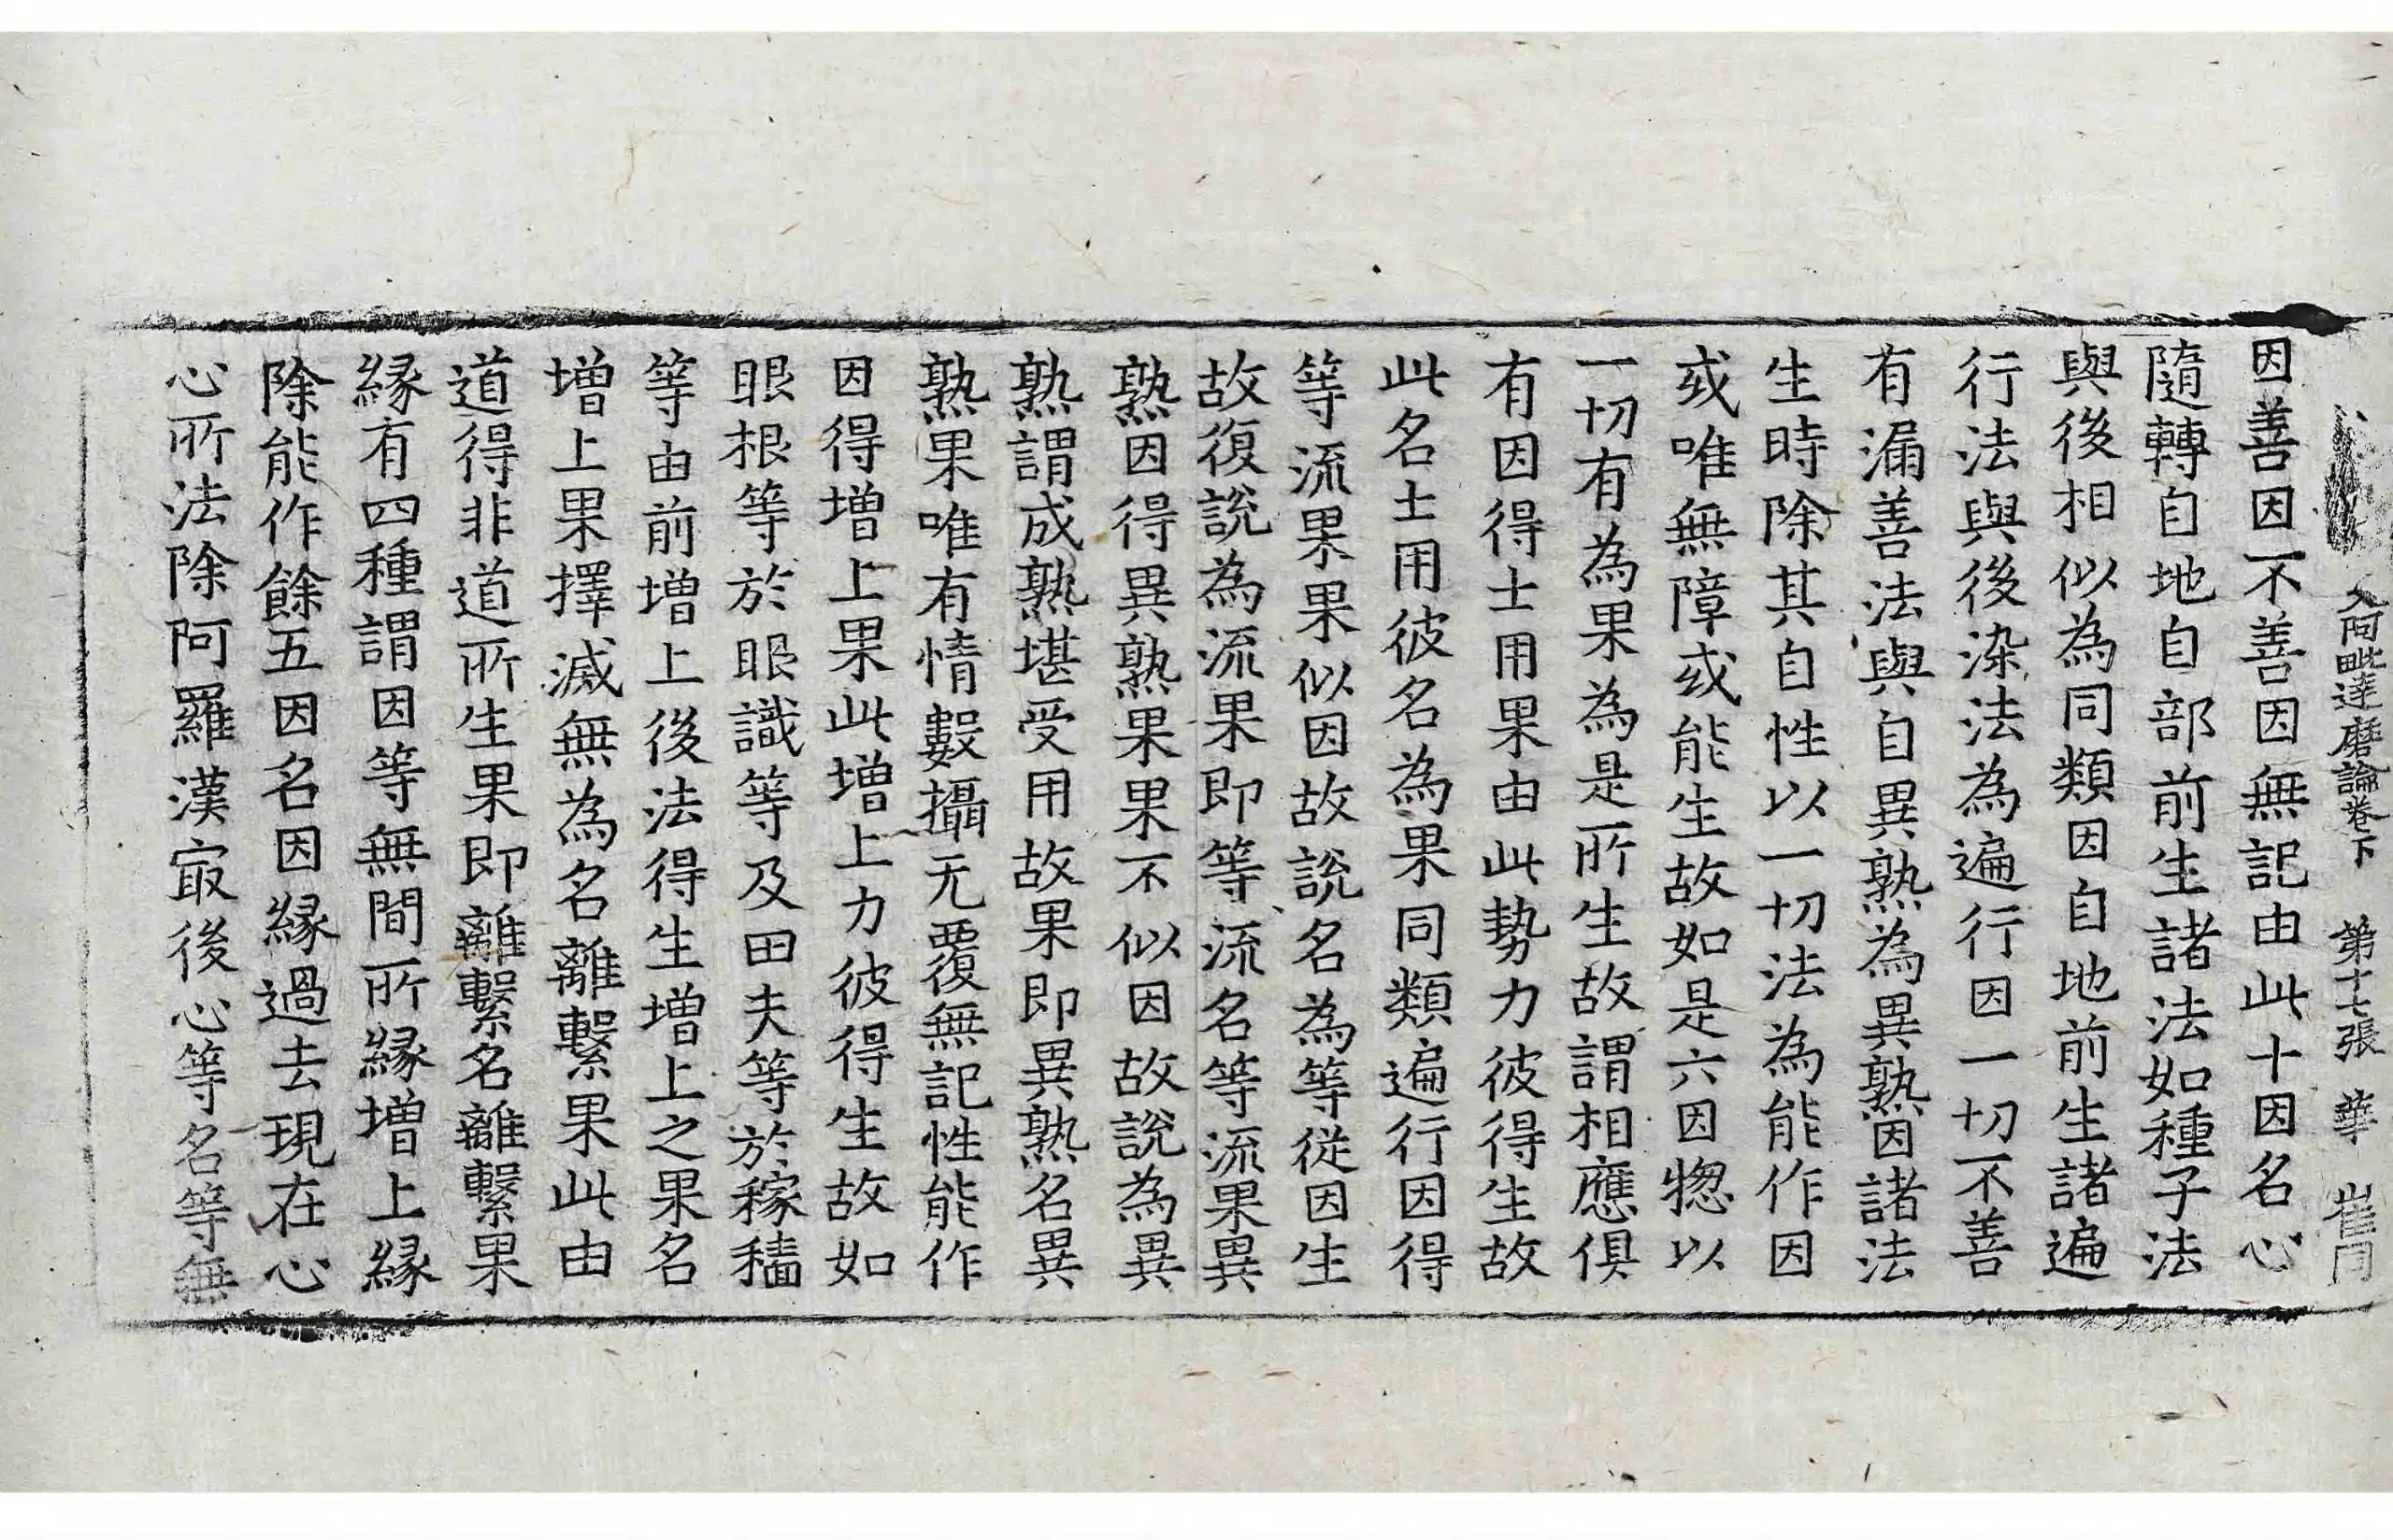 入阿毗達磨論卷下 第十七張 華 崔同
因善因不善因無記由此十因名心
隨轉自地自部前生諸法如種子法
與後相似為同類因自地前生諸遍
行法與後染法為遍行因一切不善
有漏善法與自異熟為異熟因諸法
生時除其自性以一切法為能作因
或唯無障或能生故如是六因惣以
一切有為果為是所生故謂相應俱
有因得士用果由此勢力彼得生故
此名士用彼名為果同類遍行因得
等流果果似因故說名為等從因生
故復說為流果即等流名等流果異
熟因得異熟果果不似因故說為異
熟謂成熟堪受用故果即異熟名異
熟果唯有情數攝无覆無記性能作
因得增上果此增上力彼得生故如
眼根等於眼識等及田夫等於稼穡
等由前增上後法得生增上之果名
增上果擇滅無為名離繫果此由
道得非道所生果即離繫名離繫果
緣有四種謂因等無間所緣增上緣
除能作餘五因名因緣過去現在心
心所法除阿羅漢㝡後心等名等無